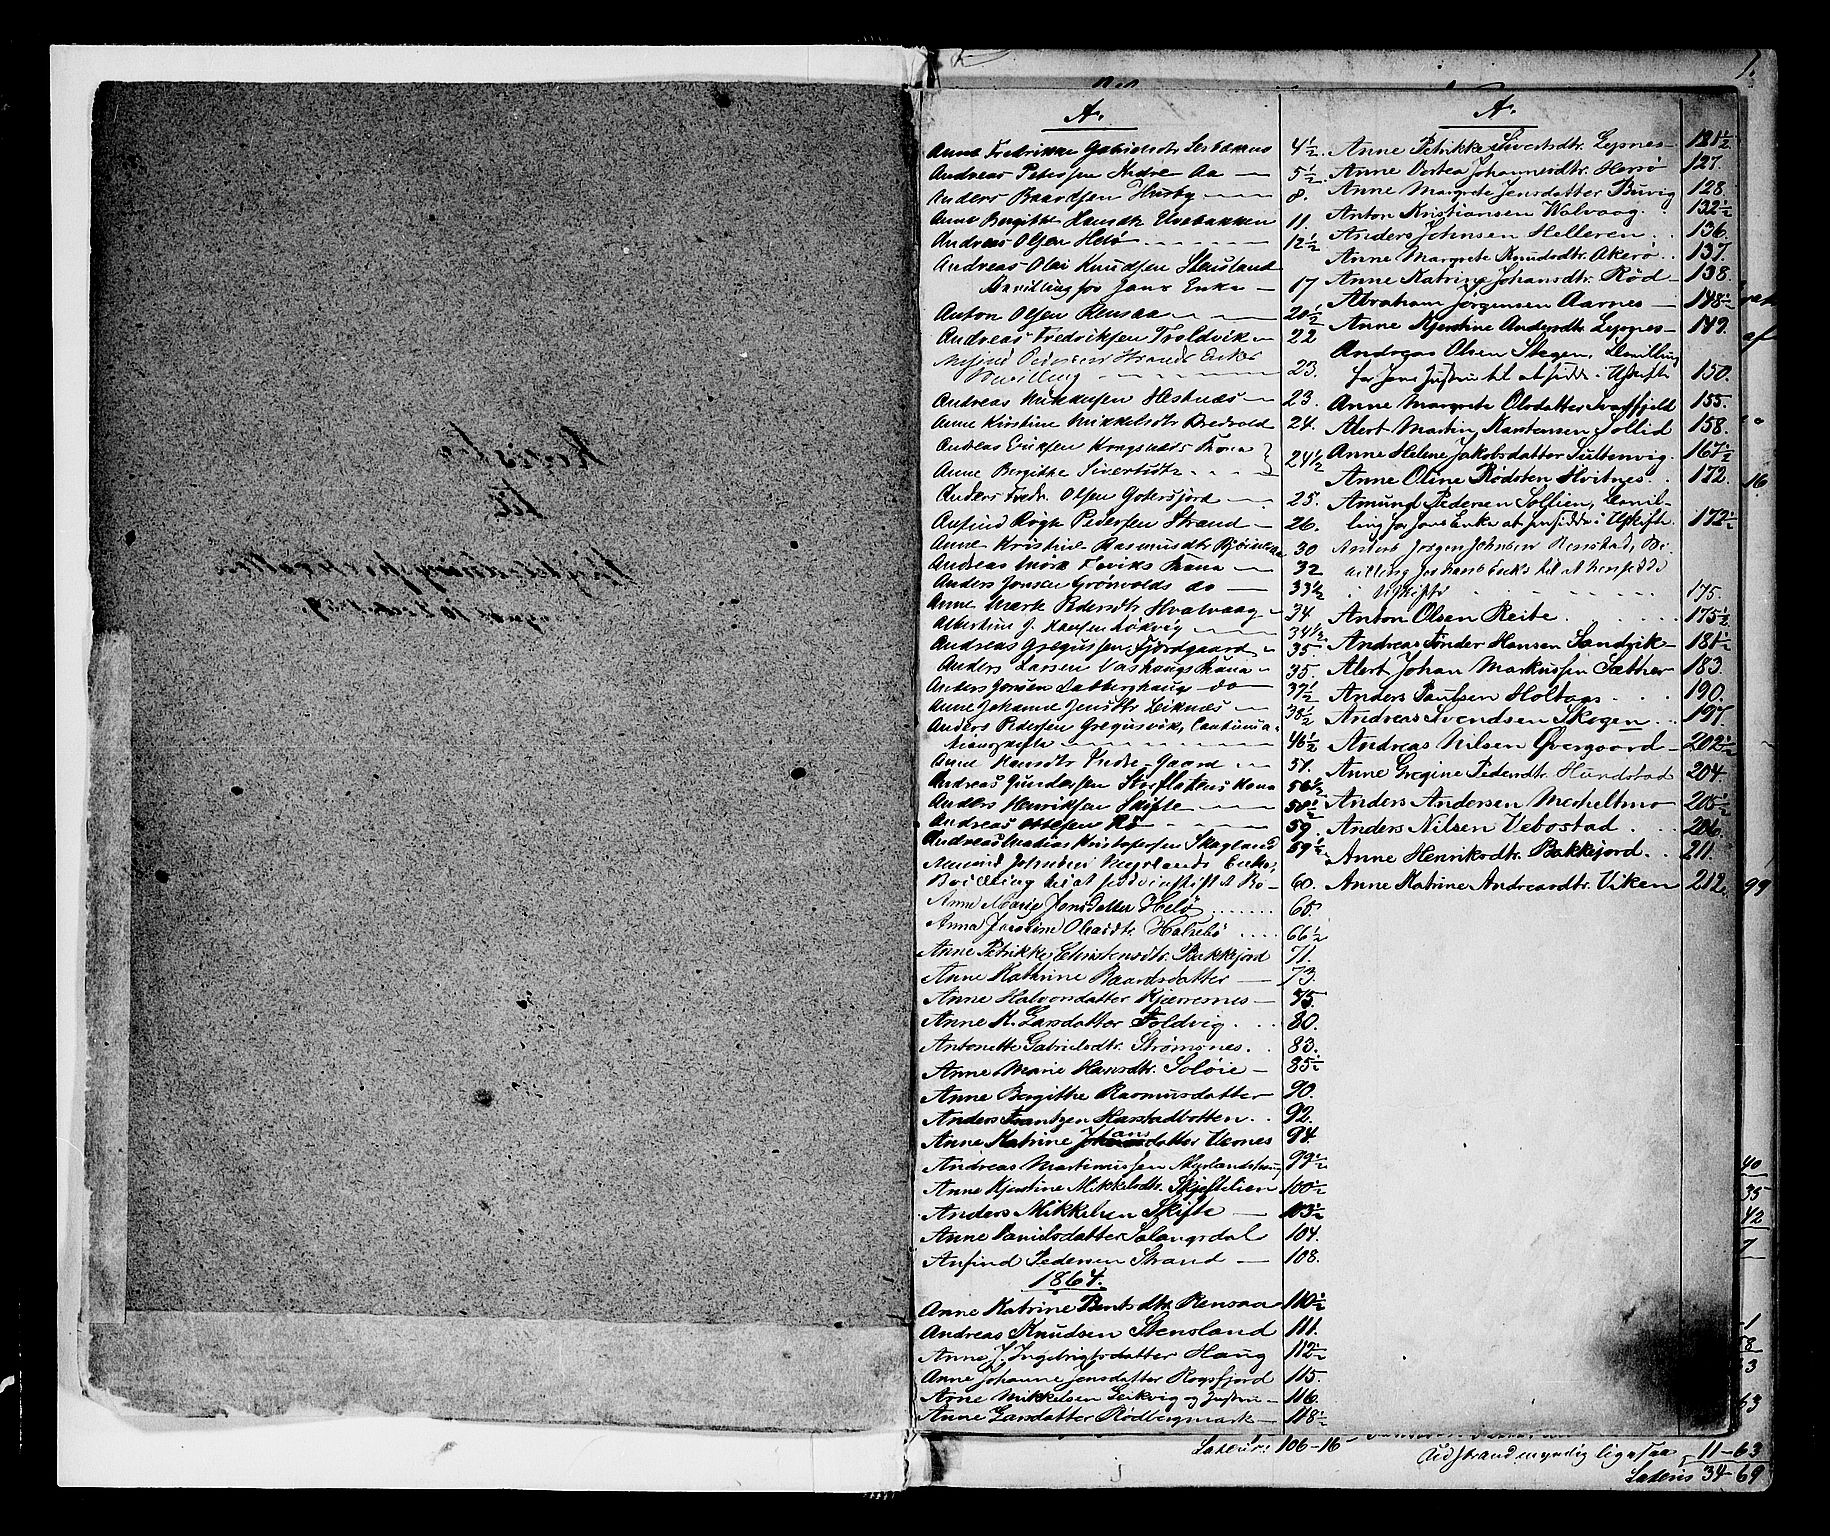 1.
A.
Anne Fredrikke Gabrielsdtr
Andreas Petersen Indre Aa 5½
Anders Baardsen Husby 8.
Anne Bergithe Hansdtr Elvebakken 11.
Andreas Olsen Helø 12½
Andreas Olai Knudsen Stensland
Bevilling for Jans Enke 17
Anton Olsen Rensaa 20½
Andreas Fredriksen Troldvik 22
Arfind Pedersen Strands Enkes
Bevilling 23.
Andreas Mikkelsen Hestnæs 23.
Anne Kirstine Mikkelsdtr Bredvold 24.
Andreas Eriksen Kongsviks Kona
Anne Bergithe Sivertsdtr 24½
Anders Fredr. Olsen Gotersfjord 25.
Anfind Røgh Pedersen Strand 26.
Anne Kristine Rasmusdtr 30
Andreas Kona 32
Anders Jonsen Grønvolds do 33½
Anne Marte Pedersdtr Hvalvaag 34.
Albertine J. Hansen Løkvig 34½
Andreas Gregussen Fjordgaard 35.
Anders Larsen Kona 35.
Anders Jonsen Labberghaug do 37½
Anne Johanne Jensdtr Leiknæs 38½
Anders Pedersen Gregusvik, Continua-
tionsskifte 46½
Anne Hansdtr Indre-Gaard 51.
Andreas Gundersen Storflatens Kona 56½
Anders Henriksen Skifte 58½
Andreas Ottesen Rø 59.
Andreas Matias Kristofersen Skagland 59½
Amund Johnsen Enkes,
Bevilling til at sidde i uskiftet Bo 60.
Anne Marie Jonsdatter Helø 65.
Anna Jacobine Olaidtr Halsebø 66½
Anne Petrikke Christensdtr. Bakkejord 71.
Anne Kathrine Baardsdatter 73.
Anne Halvorsdatter Kjærrenes 75.
Anne K. Larsdatter Foldvig 80.
Antonette Gabrielsdtr. Strømsnes 83.
Anne Marie Hansdtr. Soløie 85½
Anne Bergithe Rasmusdatter 90.
Anders Frantzen Harstadbotten 92.
Anne Katrine Johansdatter Vesnes 94.
Andreas Martinussen 99½
Anne Kjerstine Mikkelsdtr. Skjeftelien 100½
Anders Mikkelsen Skifte 103½
Anne Danielsdatter Salangsdal 104.
Anfind Pedersen Strand 108.
1864.
Anne Katrine Bentsdtr. Rensaa 110½
Andreas Knudsen Stensland 111.
Anne J. Ingebrigtsdatter Haug 112½
Anne Johanne Jensdatter Rogsfjord 115.
Arne Mikkelsen Leikvig og Justru 116.
Anne Larsdatter Rødbergmark 118½
A.
Anne Petrikke Sivertsdtr. Lysnes 121½
Anne Dortea Johannesdtr. Hersø 127.
Anne Margrete Jensdatter Buvig 128.
Anton Kristiansen Valvaag 132½
Anders Johnsen Helleren 136.
Anne Margrete Knudsdtr. Akerø 137.
Anne Katrine Johansdtr. Rød 138.
Abraham Jørgensen Aarnes 148½
Anne Kjerstine Andersdtr Lysnes 149.
Andreas Olsen Stegen, Bevilling
for Jans Justru til at sidde i Uskifte 150.
Anne Margrete Olsdatter Svartfjeld 155.
Alert Martin Karstensen Sollid 158.
Anne Helene Jakobsdatter Sultenvig 167½
Anne Oline Rødsten Hvitnes 172.
Amund Pedersen Sollien, Bevil-
ling for Jans Enke at hensidde i Uskifte 172½
Anders Jørgen Johnsen Renstad, Be-
villing for Hans Enke til at hensidde
i Uskifte 175.
Anton Olsen Reite 175½
Andreas Tønder Hansen Sandvik 181½
Alert Johan Markussen Sætter 183.
Anders Paulsen Holtaas 190.
Andreas Svendsen Skogen 197.
Andreas Nilsen Øvergaard 202½
Anne Gregine Pedersdtr. Hundstad 204.
Anders Andersen Mecheltmo 205½
Anders Nilsen Vebostad 206.
Anne Henriksdtr. Bakkejord 211.
Anne Katrine Andreasdtr. Viken 212.
af
16
99
40
35
42
7
1
8
63
Lateris 106-16
ligesaa 11-63
Lateris 34-69